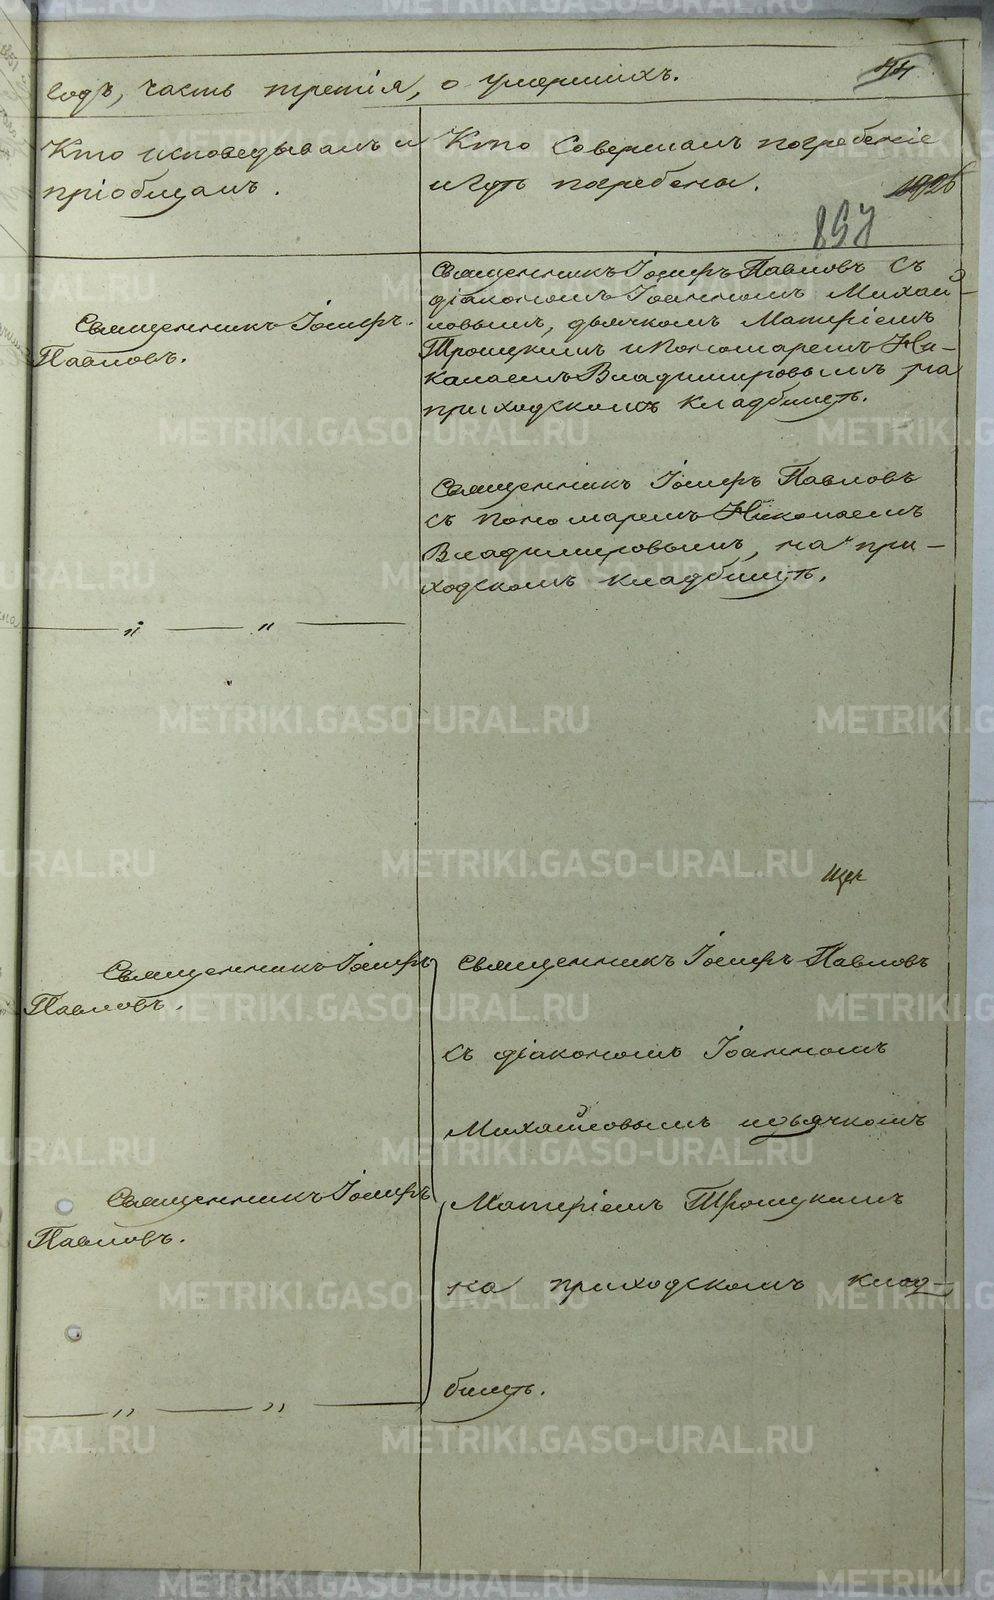 годъ, часть третія, о умершихъ.
Кто исповедывалъ и
пріобщалъ.
Кто Совершалъ погребеніе
и гдѣ погребены.
857
Священникъ Іосифъ
Павловъ.
Священникъ Іосифъ Павловъ Съ
діакономъ Іоанномъ Михай-
ловымъ, дьячкомъ Матфіемъ
Троицкимъ и Пономаремъ Ни-
калаемъ Владимировымъ на
приходскомъ кладбищѣ.
Священникъ Іосифъ Павловъ
съ пономаремъ Николаемъ
Владимировымъ, на при-
ходскомъ кладбищѣ.
— " — " —
Священникъ Іосифъ
Павловъ.
Священникъ Іосифъ
Павловъ.
— " — " —
Священникъ Іосифъ Павловъ
съ діакономъ Іоанномъ
Михайловымъ и дьячкомъ
Матфіемъ Троицкимъ
на приходскомъ клад-
бищѣ.
METRIKI.GASO-URAL.RU